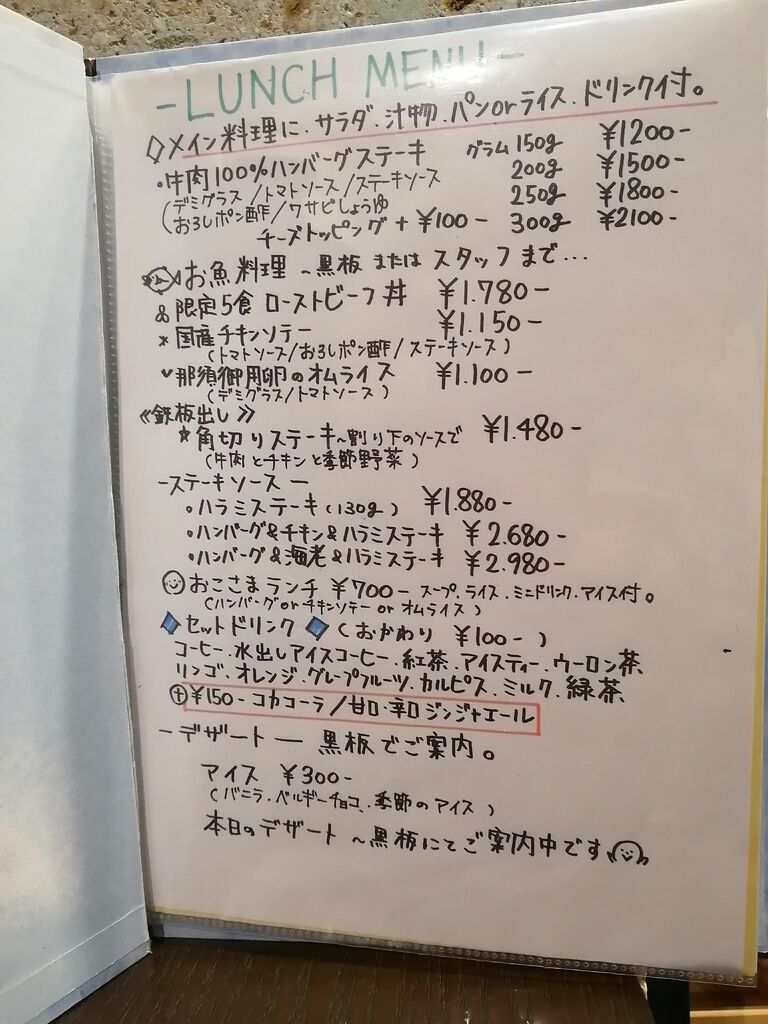 -LUNCH MENU-
◇メイン料理に、サラダ、汁物、パンorライス、ドリンク付。
・牛肉100%ハンバーグステーキ グラム 150g ¥1200-
(デミグラス/トマトソース/ステーキソース 200g ¥1500-
おろしポン酢/ワサビしょうゆ 250g ¥1800-
チーズトッピング+¥100- 300g ¥2100-
お魚料理 ~黒板 または スタッフまで...
& 限定5食 ローストビーフ丼 ¥1.780-
* 国産チキンソテー ¥1.150-
(トマトソース/おろしポン酢/ステーキソース)
那須御用卵のオムライス ¥1.100-
(デミグラス/トマトソース)
《鉄板出し》
☆角切りステーキ~割り下のソースで ¥1.480-
(牛肉とチキンと季節野菜)
-ステーキソース-
・ハラミステーキ(130g) ¥1.880-
・ハンバーグ&チキン&ハラミステーキ ¥2.680-
・ハンバーグ&海老&ハラミステーキ ¥2.980-
おこさまランチ ¥700- スープ、ライス、ミニドリンク、アイス付。
(ハンバーグorチキンソテーorオムライス)
セットドリンク (おかわり ¥100-)
コーヒー、水出しアイスコーヒー、紅茶、アイスティー、ウーロン茶、
リンゴ、オレンジ、グレープフルーツ、カルピス、ミルク、緑茶、
⊕¥150- コカコーラ/甘口・辛口ジンジャエール
-デザート- 黒板でご案内。
アイス ¥300-
(バニラ、ベルギーチョコ、季節のアイス)
本日のデザート ~黒板にてご案内中です